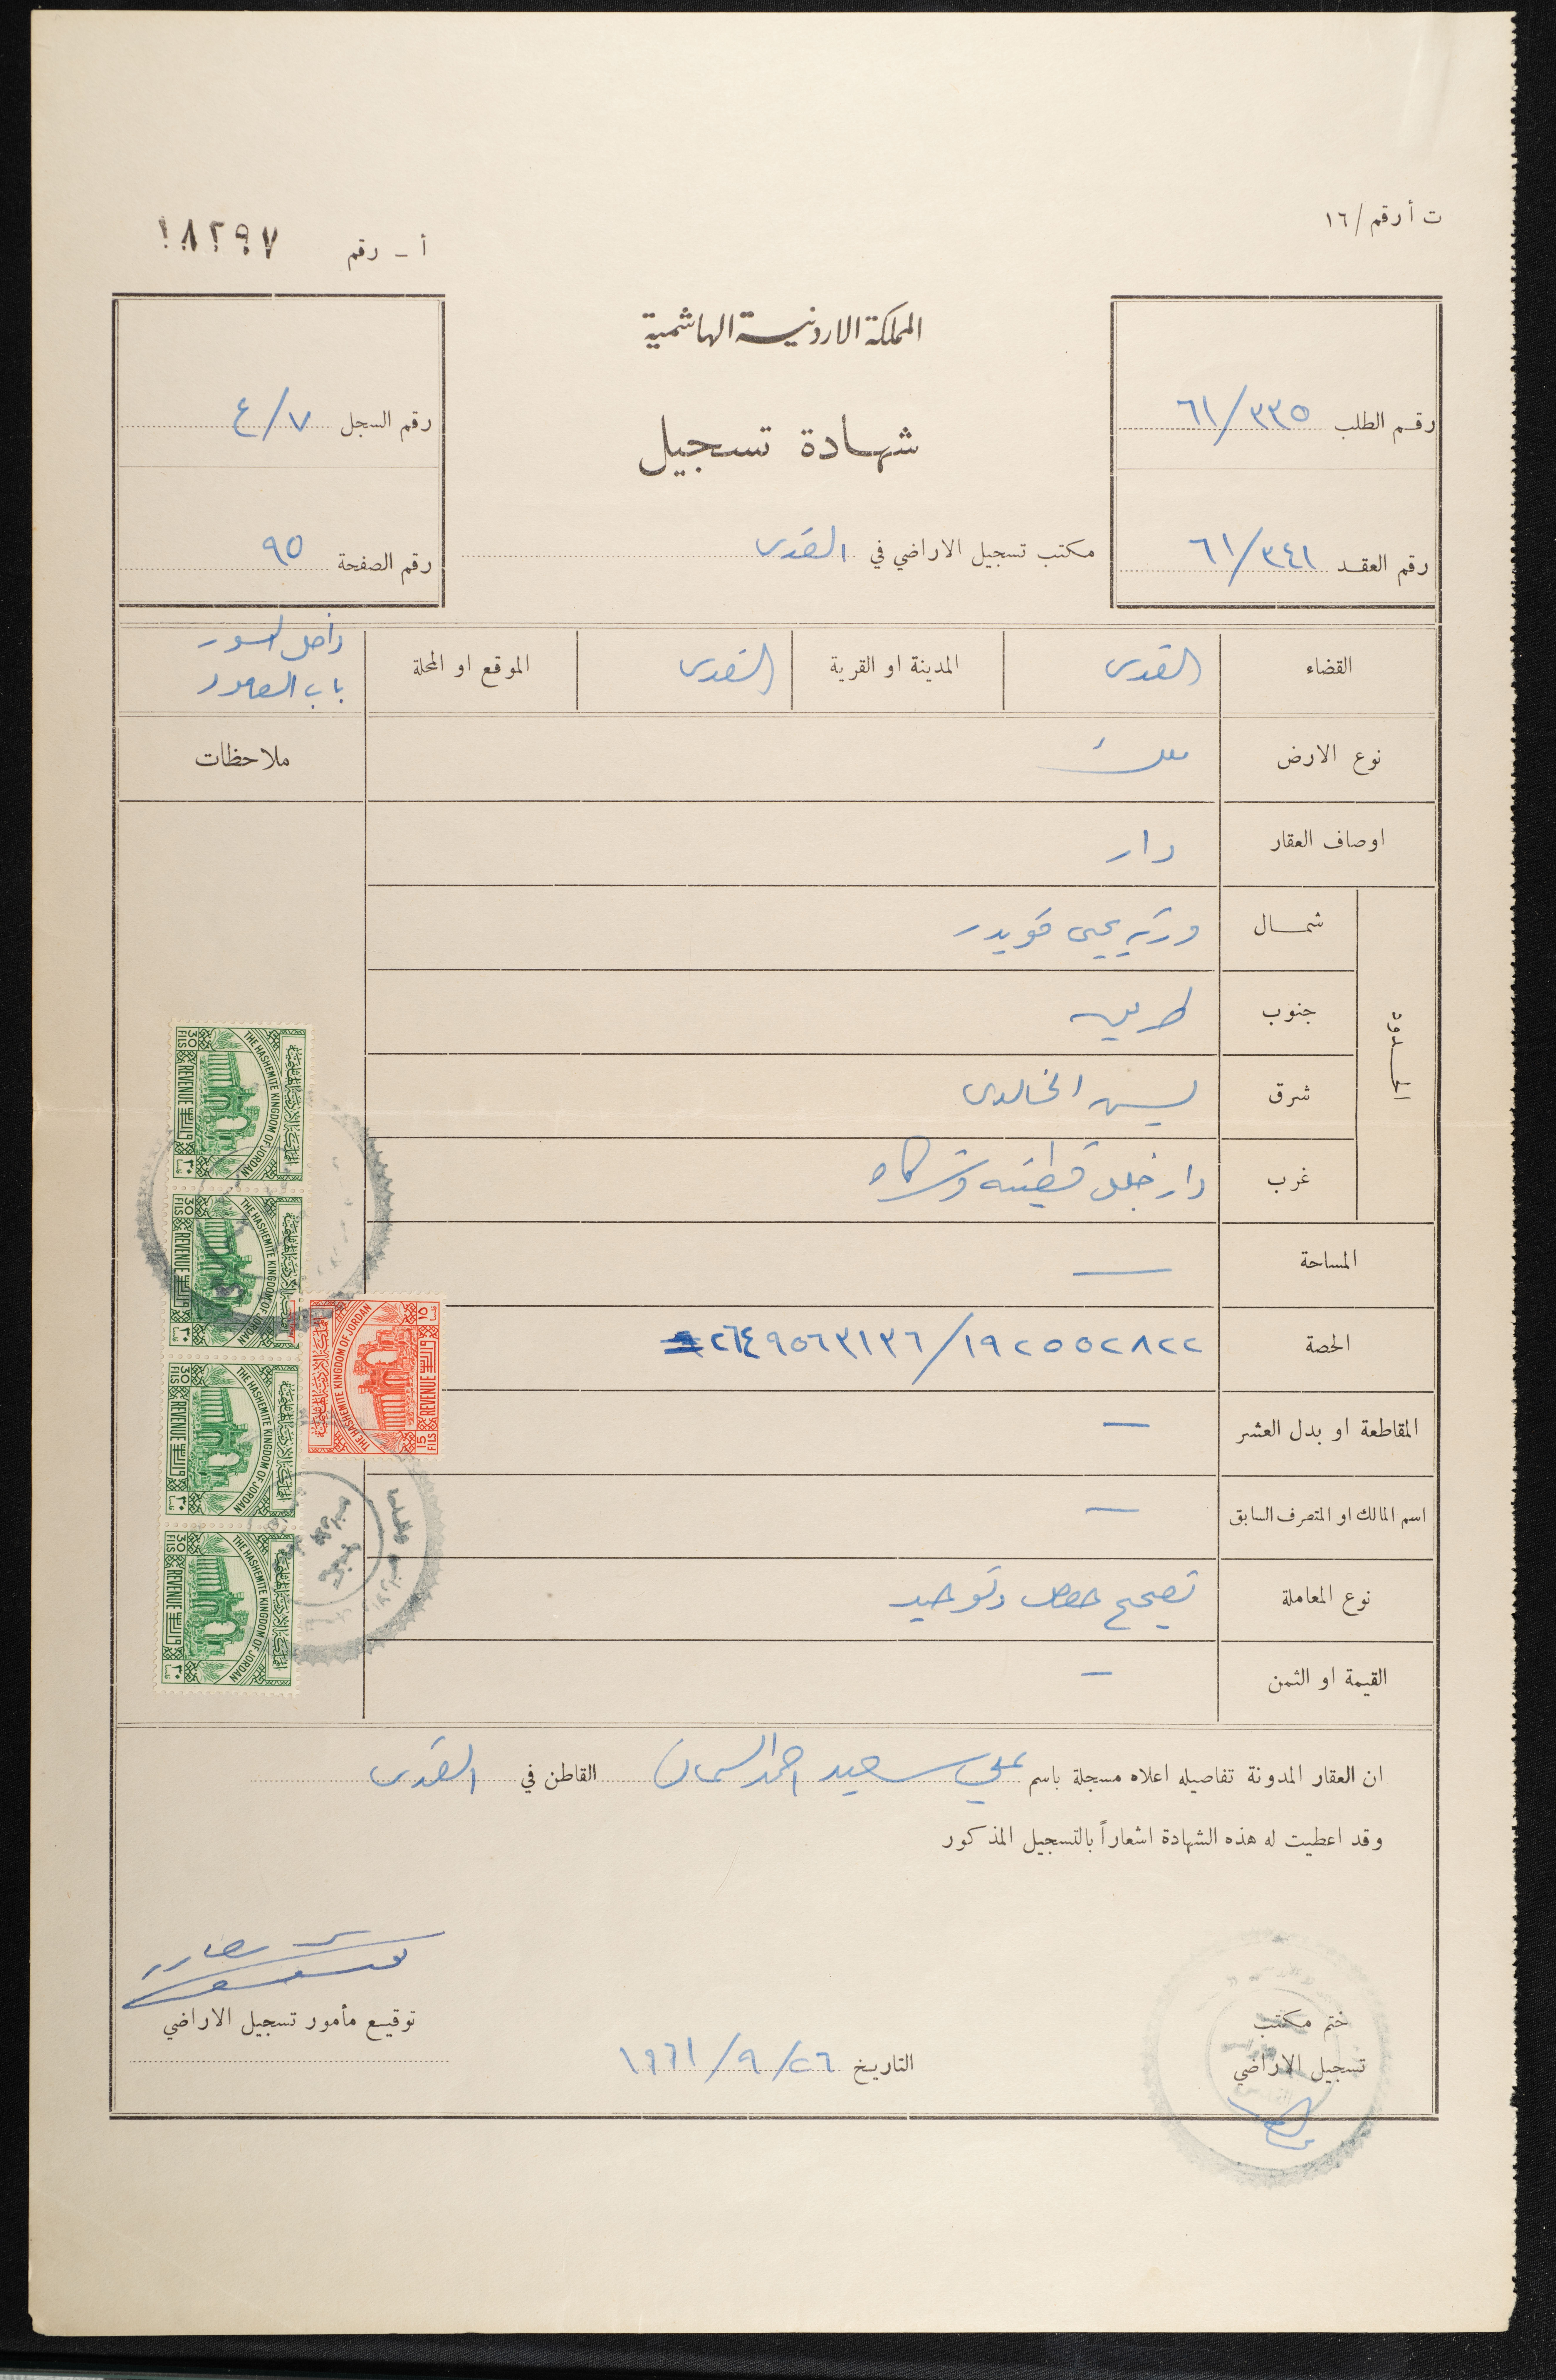 ت أ رقم / ١٦
أ - رقم ١٨٢٩٧
المملكة الاردنية الهاشمية
شهادة تسجيل
رقم الطلب ٦١/٣٣٥
رقم العقد ٦١/٣٤١
رقم السجل ٤/٧
رقم الصفحة ٩٥
مكتب تسجيل الاراضي في القدس
القضاء القدس المدينة او القرية القدس الموقع او المحلة داخل السور
باب العامود
نوع الارض ملك
ملاحظات
اوصاف العقار دار
الحدود
شمال ورثة يحيى قويدر
جنوب طريق
شرق يسن الخالدي
غرب دار خليل قطينه وشركاه
المساحة —
الحصة ١٩٢٥٥٢٨٢٢/٢٦٤٩٥٦٣١٣٦
المقاطعة او بدل العشر —
اسم المالك او المتصرف السابق —
نوع المعاملة تصحيح حصص وتوحيد
القيمة او الثمن —
THE HASHEMITE KINGDOM OF JORDAN
30 FILS REVENUE ٣٠
THE HASHEMITE KINGDOM OF JORDAN
30 FILS REVENUE ٣٠
THE HASHEMITE KINGDOM OF JORDAN
30 FILS REVENUE ٣٠
THE HASHEMITE KINGDOM OF JORDAN
30 FILS REVENUE ٣٠
THE HASHEMITE KINGDOM OF JORDAN
15 FILS REVENUE ١٥
ان العقار المدونة تفاصيله اعلاه مسجلة باسم علي سعيد احمد السمان القاطن في القدس
وقد اعطيت له هذه الشهادة اشعاراً بالتسجيل المذكور
توقيع مأمور تسجيل الاراضي
ختم مكتب
تسجيل الاراضي
التاريخ ٢٦/٩/١٩٦١